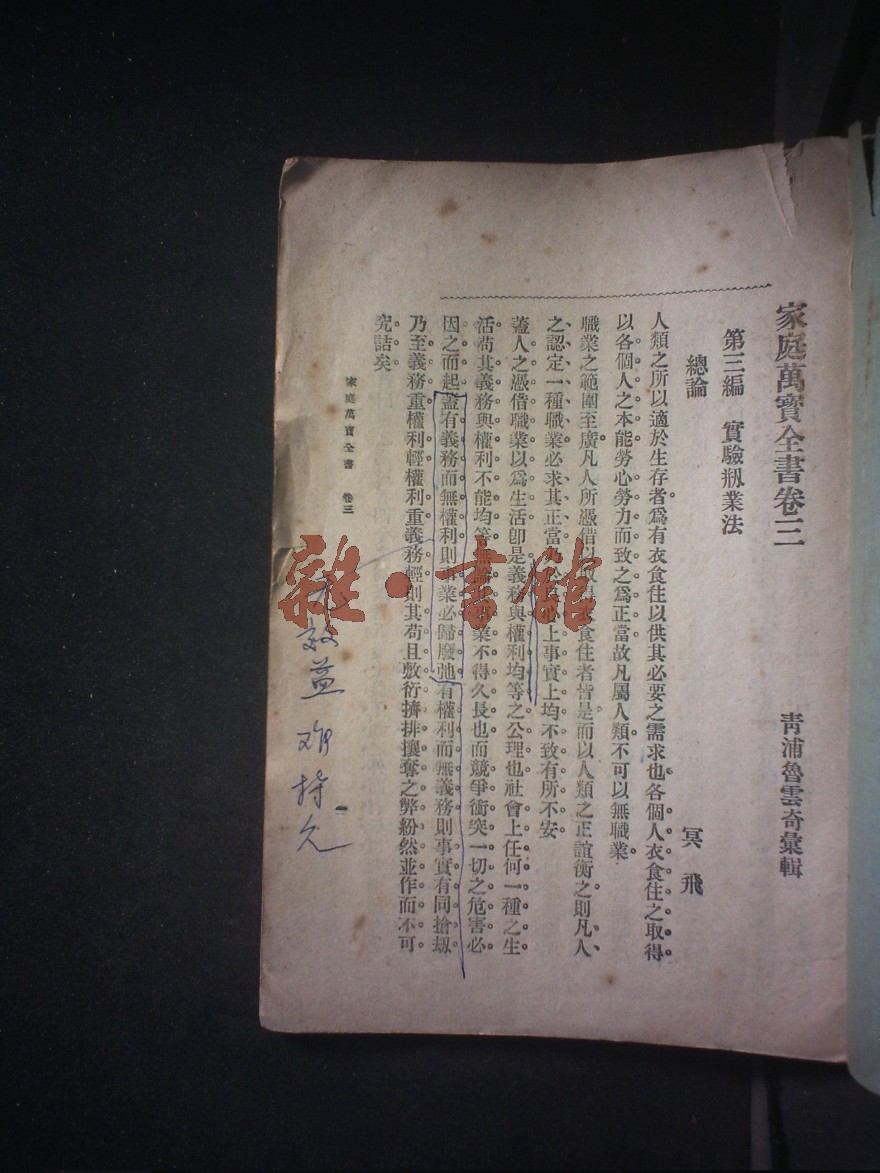 家庭萬寶全書卷三
青浦魯雲奇彙輯
第三編　實驗剏業法
總論
冥飛
人類之所以適於生存者爲有衣食住以供其必要之需求也各個人衣食住之取得
以各個人之本能勞心勞力而致之爲正當故凡屬人類不可以無職業
職業之範圍至廣凡人所憑借以取得衣食住者皆是而以人類之正誼衡之則凡人
之認定一種職業必求其正當 心上事實上均不致有所不安
蓋人之憑借職業以爲生活卽是義務與權利均等之公理也社會上任何一種之生
活苟其義務與權利不能均等無論 業不得久長也而競爭衝突一切之危害必
因之而起蓋有義務而無權利則事業必歸廢弛有權利而無義務則事實有同搶刼
乃至義務重權利輕權利重義務輕則其苟且敷衍擠排攘奪之弊紛然並作而不可
究詰矣
家庭萬寶全書　卷三
一
效益 難持久
雜·書館